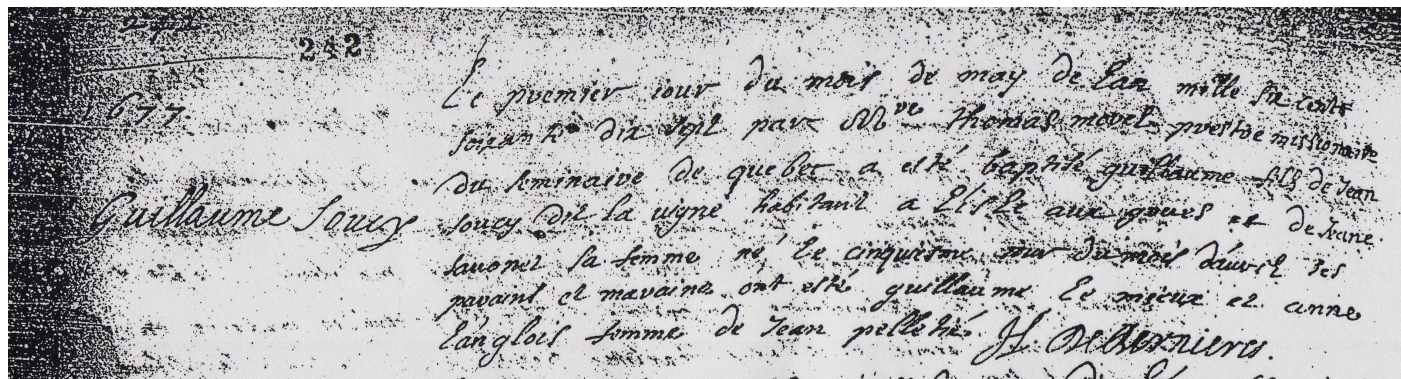 242
677.
Guillaume Soucy
Le premier iour du mois de may de lan mille six cents
soixante dix sept par Mre thomas morel prestre missionaire
du seminaire de quebec a esté baptisé guillaume fils de Jean
soucy dit la vigne habitant a lisle aux grues et de Jeane
savonet sa femme né le cinquiesme iour du mois d'avril ses
parains et maraine ont esté guillaume le mieux et anne
langlois femme de Jean pelletié. H. DeBernieres.